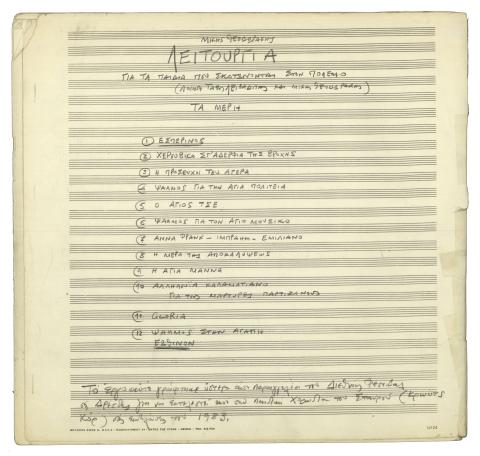 ΜΙΚΗΣ ΘΕΟΔΩΡΑΚΗΣ
ΛΕΙΤΟΥΡΓΙΑ
ΓΙΑ ΤΑ ΠΑΙΔΙΑ ΠΟΥ ΣΚΟΤΩΝΟΝΤΑΙ ΣΤΟΝ ΠΟΛΕΜΟ
(ΠΟΙΗΣΗ ΤΑΣΟΣ ΛΕΙΒΑΔΙΤΗΣ ΚΑΙ ΜΙΚΗΣ ΘΕΟΔΩΡΑΚΗΣ)
ΤΑ ΜΕΡΗ
1 ΕΣΠΕΡΙΝΟΣ
2 ΧΕΡΟΥΒΙΚΟ ΣΤ' ΑΔΕΡΦΙΑ ΤΗΣ ΒΡΟΧΗΣ
3 Η ΠΡΟΣΕΥΧΗ ΤΟΥ ΑΓΕΡΑ
4 ΨΑΛΜΟΣ ΓΙΑ ΤΗΝ ΑΓΙΑ ΠΟΛΙΤΕΙΑ
5 Ο ΑΓΙΟΣ ΤΣΕ
6 ΨΑΛΜΟΣ ΓΙΑ ΤΟΝ ΑΓΙΟ ΜΟΥΣΙΚΟ
7 ΑΝΝΑ ΦΡΑΝΚ - ΙΜΠΡΑΗΜ - ΕΜΙΛΙΑΝΟ
8 Η ΜΕΡΑ ΤΗΣ ΑΠΟΚΑΛΥΨΕΩΣ
9 Η ΑΓΙΑ ΜΑΝΝΑ
10 ΑΛΛΗΛΟΥΙΑ ΚΑΛΑΜΑΤΙΑΝΟ
ΓΙΑ ΤΟΥΣ ΜΑΡΤΥΡΕΣ ΠΑΡΤΙΖΑΝΟΥΣ
11 GLORIA
12 ΨΑΛΜΟΣ ΣΤΗΝ ΑΓΑΠΗ
Το έργο αυτό γράφτηκε ύστερα από παραγγελία του Διεθνούς Φεστιβάλ
της Δρέσδης για να εκτελεστεί από την Παιδική Χορωδία του Σταυρού (Κρώυτς
Κορ) της πόλεως το 1983.